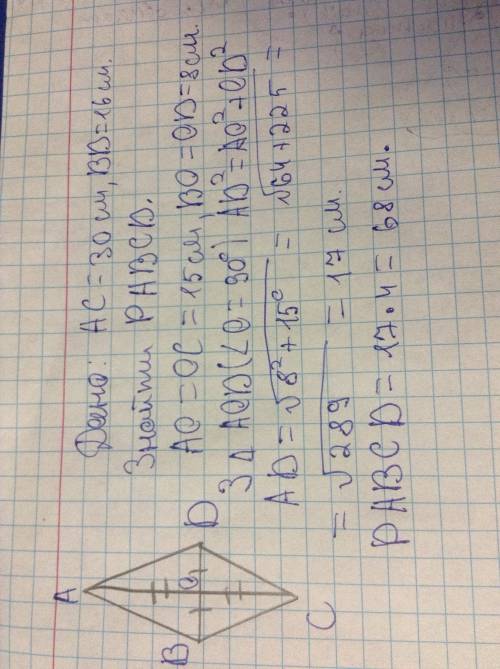 Дано: AC = 30 см, BD = 16 см.
Знайти PABCD.
AO = OC = 15 см, BO = OD = 8 см.
З Δ AOD (∠O = 90°) AD² = AO² + OD²
AD = √8² + 15² = √64 + 225 =
= √289 = 17 см.
PABCD = 17 • 4 = 68 см.
A
B
O
D
C